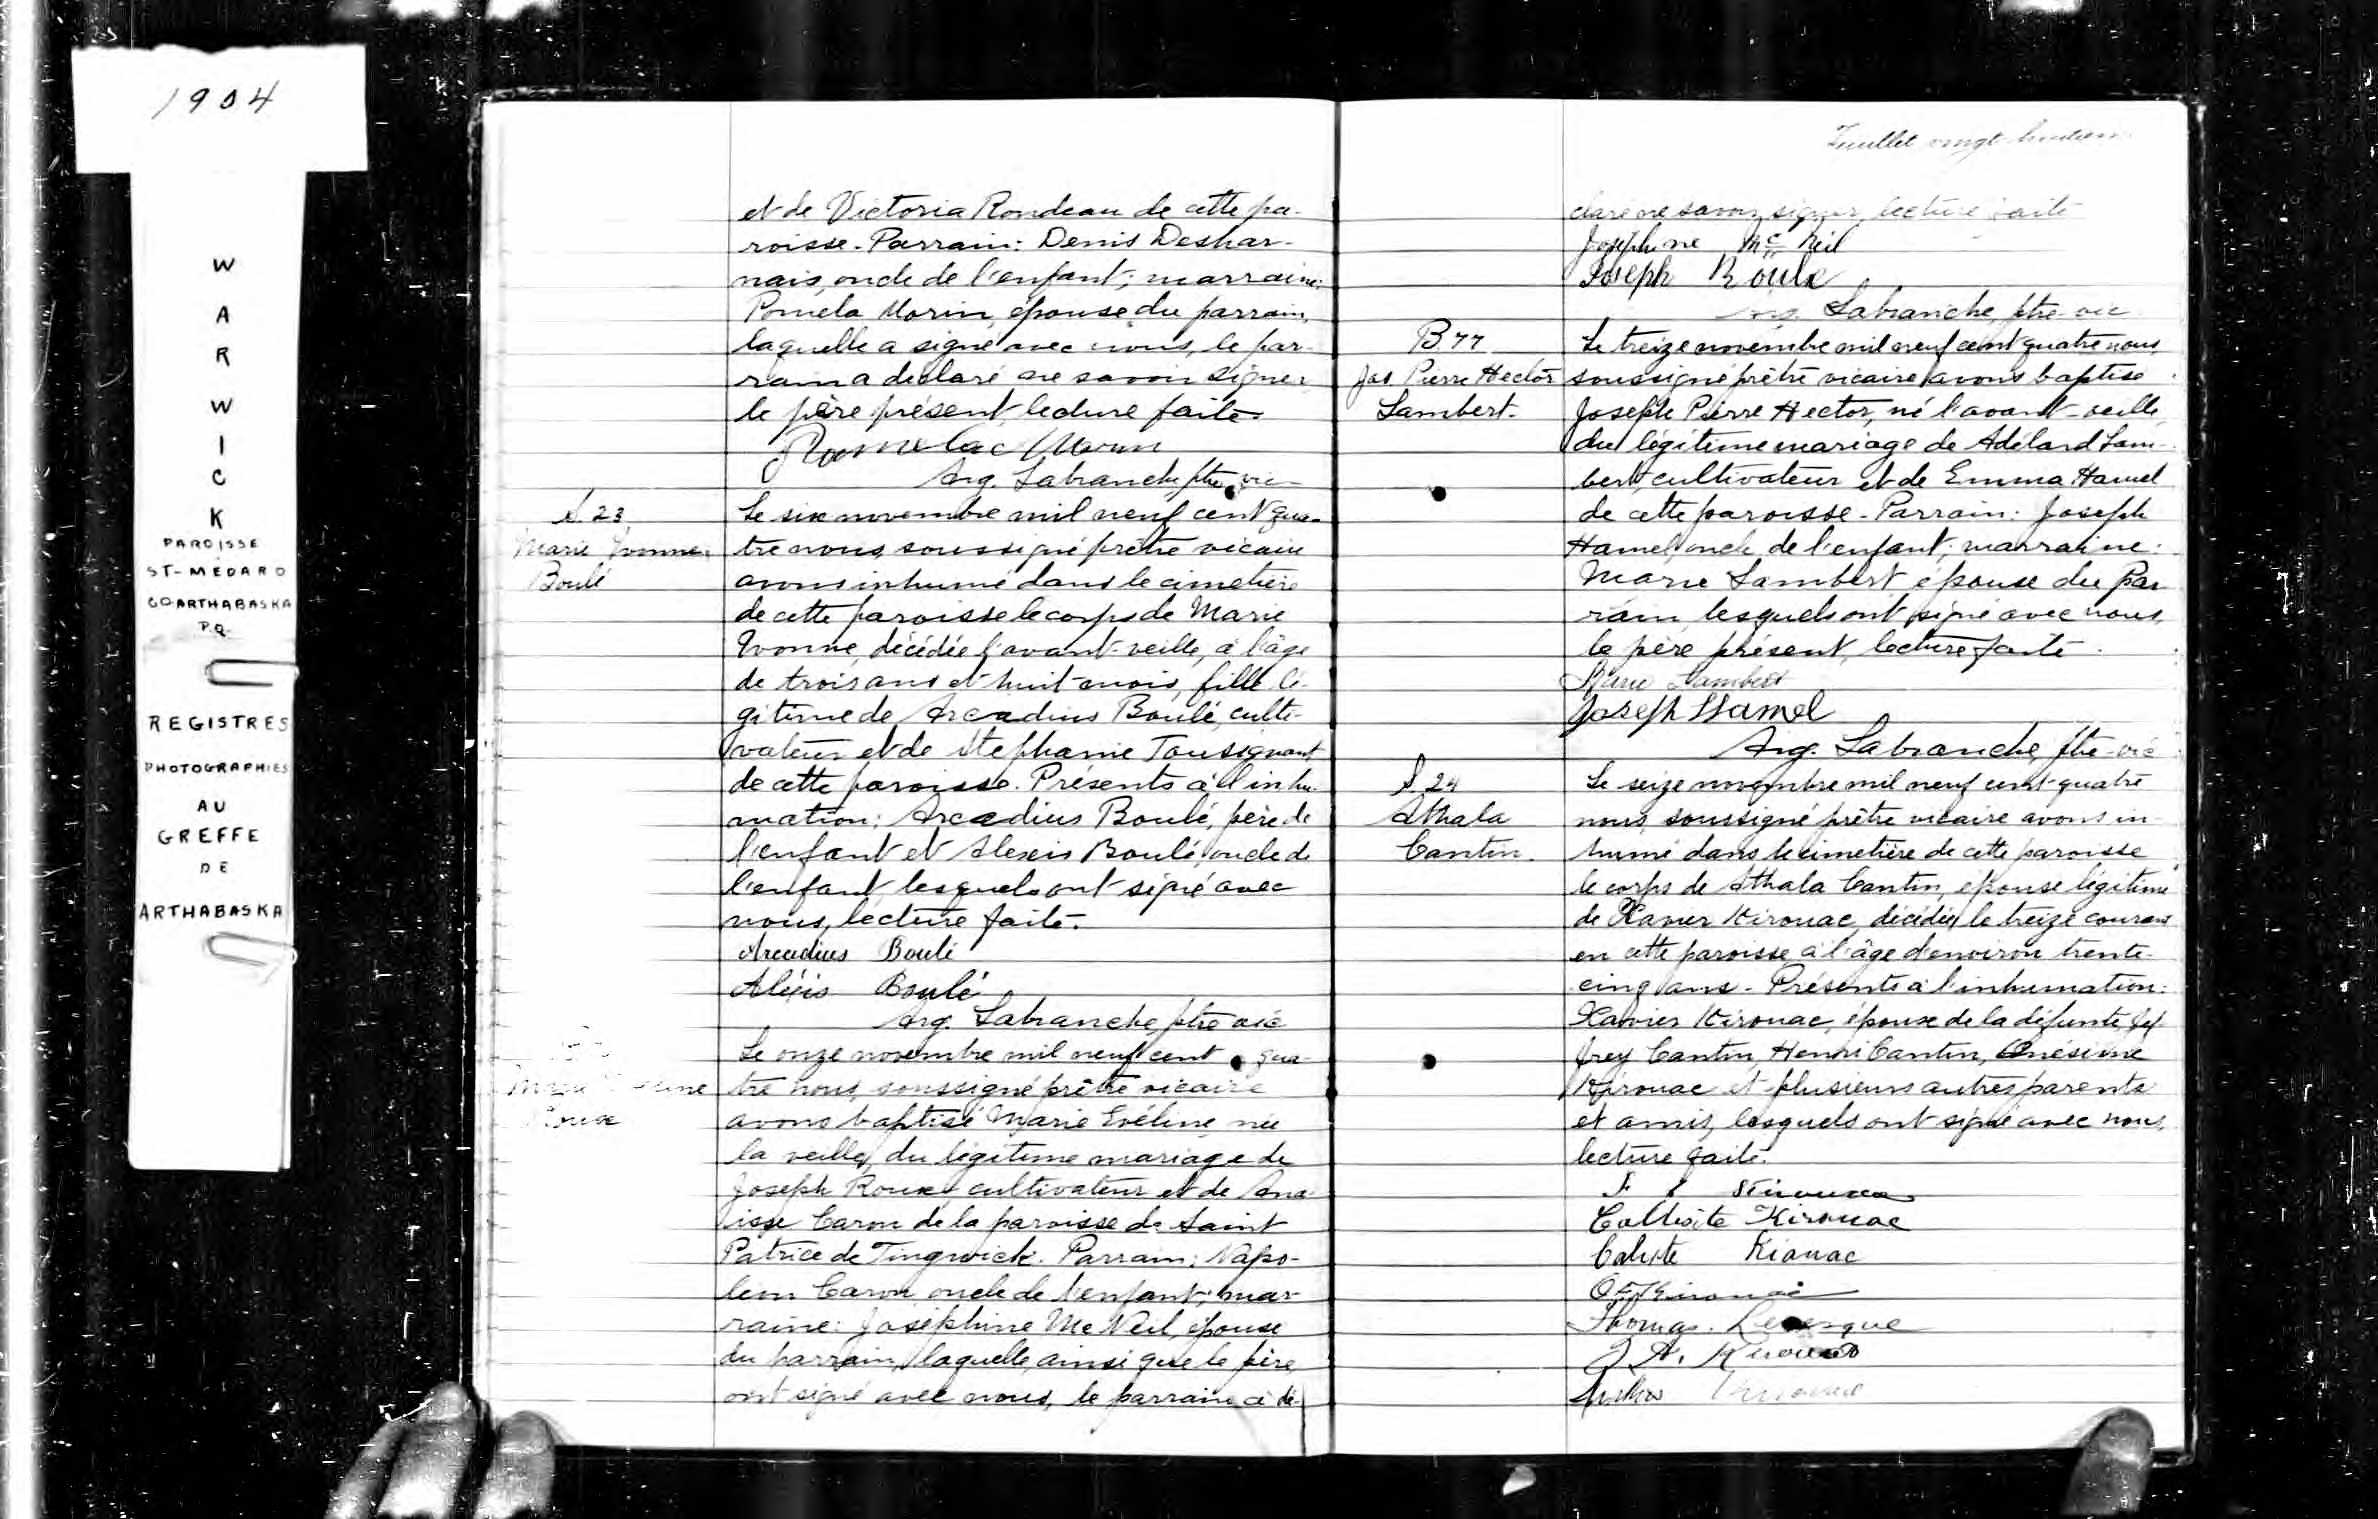 1904
W
A
R
W
I
C
K
PAROISSE
ST-MEDARD
CO ARTHABASKA
P.Q.
REGISTRES
PHOTOGRAPHIES
AU
GREFFE
DE
ARTHABASKA
et de Victoria Rondeau de cette pa-
roisse. Parrain: Denis Deshar-
nais, oncle de l'enfant; marraine:
Pomela Morin, épouse du parrain,
laquelle a signé avec nous, le par-
rain a déclaré ne savoir signer
le père présent, lecture faite.
Morin
Arg. Labranche, ptre vic
S. 23
Marie Yvonne
Boulé
Le six novembre mil neuf cent qua-
tre nous soussigné prêtre vicaire
avons inhumé dans le cimetière
de cette paroisse le corps de Marie
Yvonne, décédée l'avant-veille, à l'âge
de trois ans et huit mois, fille lé-
gitime de Arcadius Boulé, culti-
vateur et de Stephanie Tousignant
de cette paroisse. Présents à l'inhu-
mation: Arcadius Boulé, père de
l'enfant et Alexis Boulé, oncle de
l'enfant, lesquels ont signé avec
nous, lecture faite.
Arcadius Boulé
Aléxis Boulé
Arg. Labranche, ptre vic
Marie
Roux
Le onze novembre mil neuf cent qua-
tre nous, soussigné prêtre vicaire
avons baptisé Marie Evéline, née
la veille, du légitime mariage de
Joseph Roux, cultivateur et de Ana-
isse Caron de la paroisse de Saint
Patrice de Tingwick. Parrain: Napo-
léon Caron, oncle de l'enfant; mar-
raine: Joséphine Mc Neil, épouse
du parrain, laquelle, ainsi que le père
ont signé avec nous, le parrain a dé-
Feuillet vingt-huitième
claré ne savoir signer, lecture faite
Joséphine Mc Neil
Joseph Roulx
Arg. Labranche, ptre-vic
B. 77
Jos. Pierre Hector
Lambert.
Le treize novembre mil neuf cent quatre nous
soussigné prêtre vicaire avons baptisé
Joseph Pierre Hector, né l'avant-veille,
du légitime mariage de Adélard Lam-
bert, cultivateur et de Emma Hamel
de cette paroisse. Parrain: Joseph
Hamel, oncle de l'enfant; marraine:
Marie Lambert épouse du par
rain, lesquels ont signé avec nous,
le père présent, lecture faite.
Marie Lambert
Joseph Hamel
Arg. Labranche, ptre-vic
S. 24
Athala
Cantin.
Le seize novembre mil neuf cent-quatre
nous, soussigné prêtre vicaire avons in-
humé dans le cimetière de cette paroisse
le corps de Athala Cantin, épouse légitime
de Xavier Kirouac, décédée, le treize courant
en cette paroisse à l'âge d'environ trente-
cinq ans. Présents à l'inhumation:
Xavier Kirouac, épouse de la défunte, Jef-
frey Cantin, Henri Cantin, Onésime
Kirouac et plusieurs autres parents
et amis, lesquels ont signé avec nous,
lecture faite.
Kirouac
Callixte Kirouac
Calixte Kiouac
Kirouac
Thomas Levesque
J A. Kirouac
Kirouac